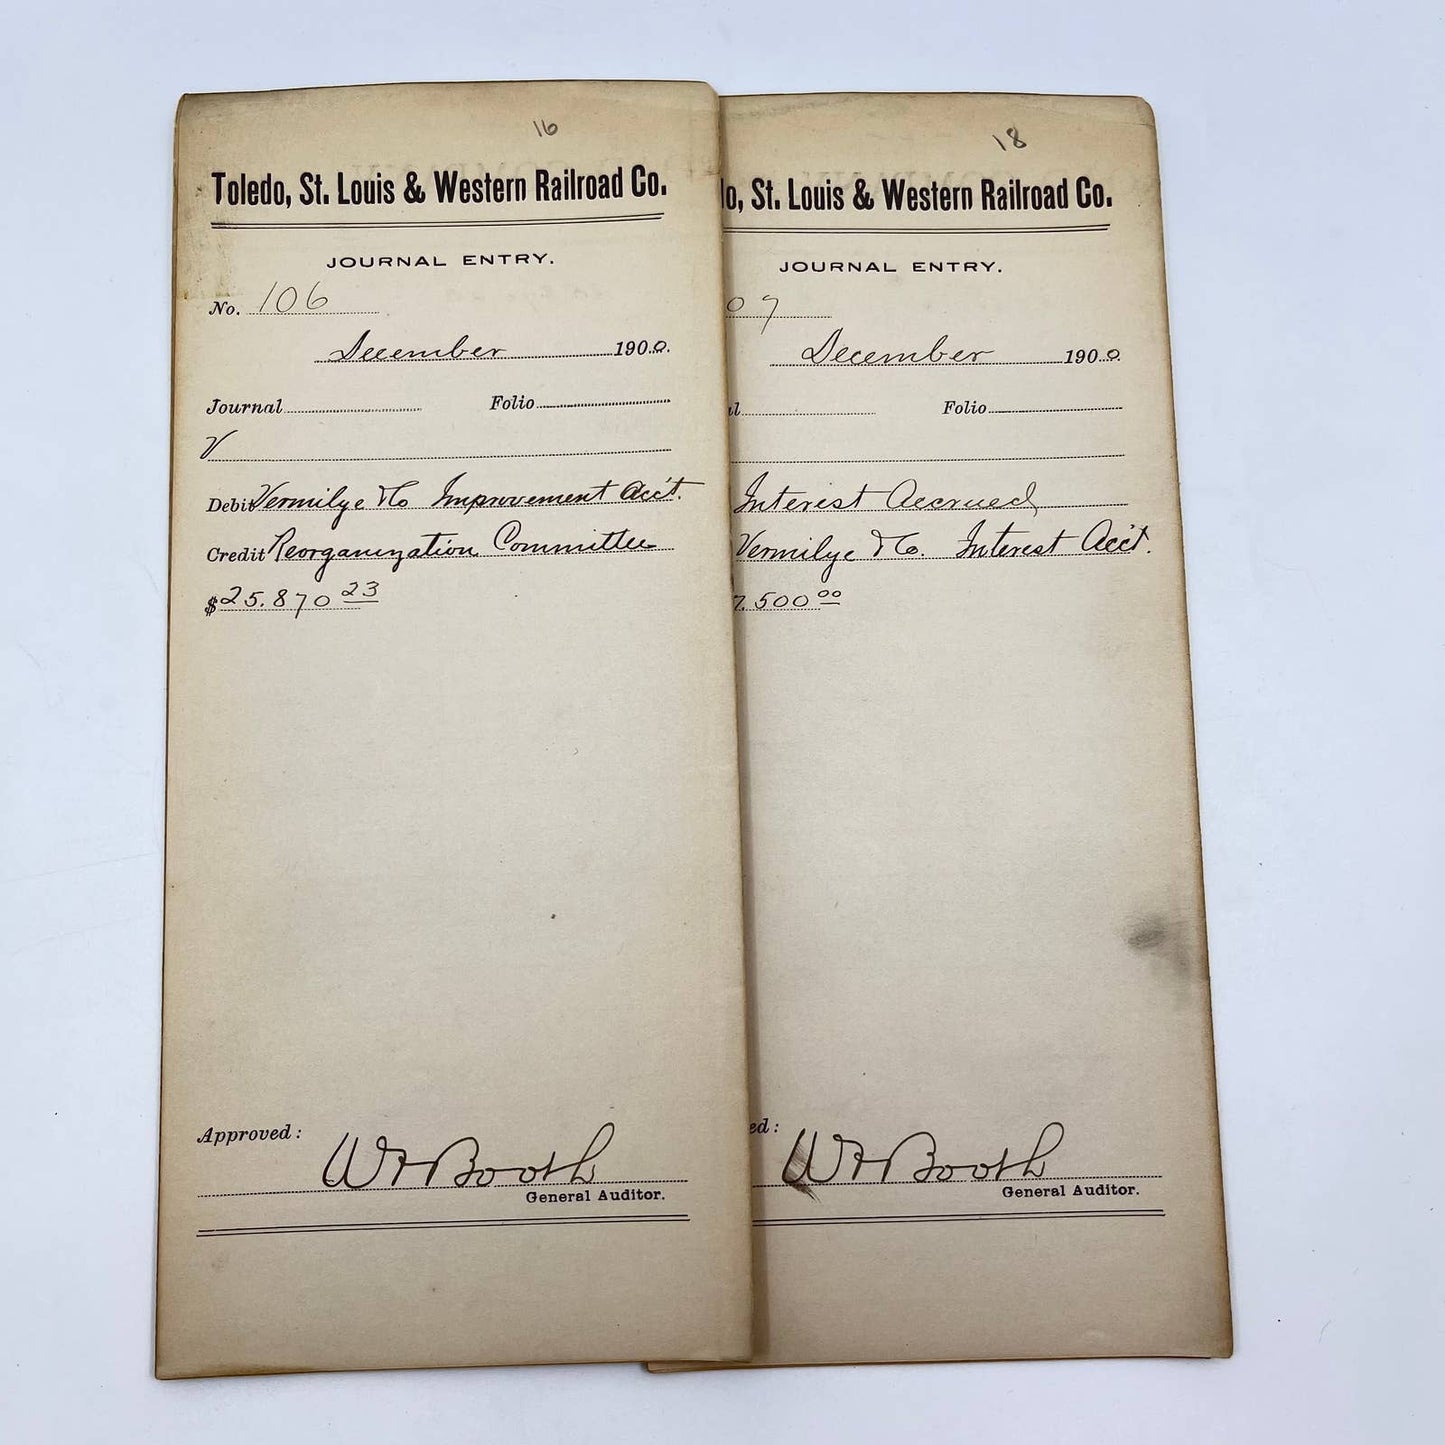 16
Toledo, St. Louis & Western Railroad Co.
JOURNAL ENTRY.
No. 106
December 1900.
Journal Folio
V
Debit Vermilye & Co Improvement Acc't.
Credit Reorganization Committee
$25.870 23
Approved:
W A Booth
General Auditor.
18
lo, St. Louis & Western Railroad Co.
JOURNAL ENTRY.
07
December 1900
al Folio
Interest Accrued
Vermilye & Co. Interest Acc't.
7.500 00
ed:
W A Booth
General Auditor.